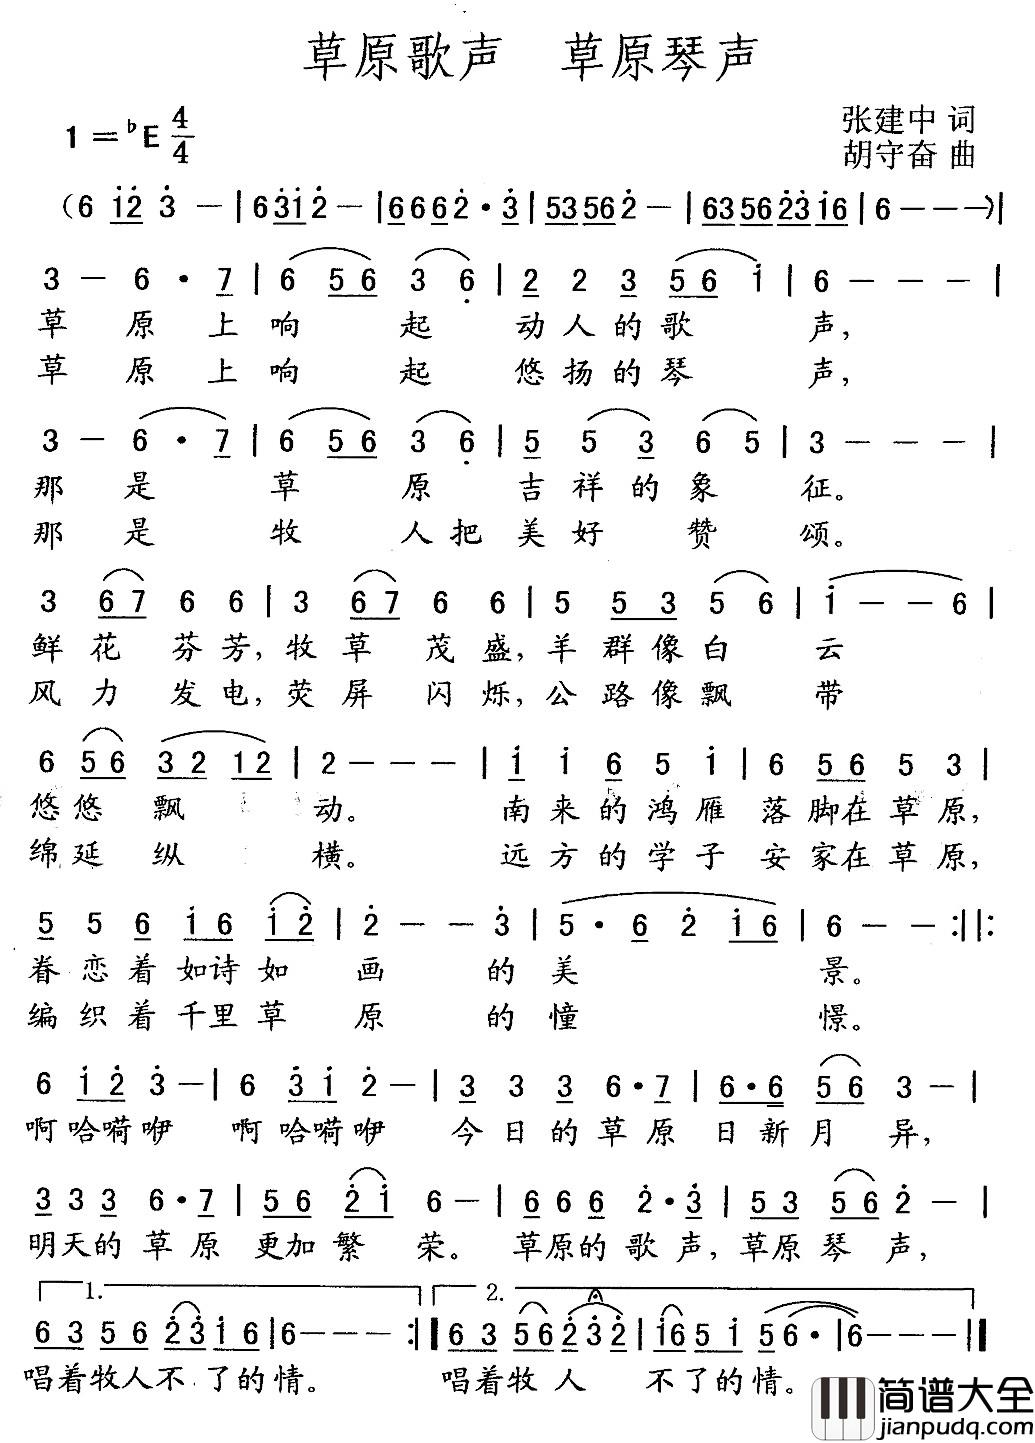 草原歌声 草原琴声
1=♭E 4/4
张建中 词
胡守奋 曲
(6 i2 3 - | 6 3i 2 - | 6 6 6 2 · 3 | 53 56 2 - | 63 56 23 i6 | 6 - - - ) |
3 - 6 · 7 | 6 56 3 6 | 2 2 3 56 i | 6 - - - |
草 原 上 响 起 动人的歌 声,
草 原 上 响 起 悠扬的琴 声,
3 - 6 · 7 | 6 56 3 6 | 5 5 3 6 5 | 3 - - - |
那 是 草 原 吉祥的象 征。
那 是 牧 人把美好 赞 颂。
3 67 6 6 | 3 67 6 6 | 5 53 5 6 | i - - 6 |
鲜花芬芳,牧草茂盛,羊群像白 云
风力发电,荧屏闪烁,公路像飘 带
6 56 32 12 | 2 - - - | i i 6 5 i | 6 56 5 3 |
悠悠飘 动。 南来的鸿雁落脚在草原,
绵延纵 横。 远方的学子安家在草原,
5 5 6 i6 i2 | 2 - - 3 | 5 · 6 2 i6 | 6 - - :||:
眷恋着如诗如 画 的美 景。
编织着千里草 原 的憧 憬。
6 i2 3 - | 6 3i 2 - | 3 3 3 6 · 7 | 6 · 6 56 3 - |
啊哈嗬咿 啊哈嗬咿 今日的草原日新月 异,
3 3 3 6 · 7 | 56 2i 6 - | 6 6 6 2 · 3 | 53 56 2 - |
明天的草原更加繁 荣。 草原的歌声,草原琴 声,
1. 2.
63 56 23 i6 | 6 - - - :|| 63 56 232 | i6 5i 56 · | 6 - - ||
唱着牧人不了的情。 唱着牧人 不了的情。
简谱大全
jianpudq.com